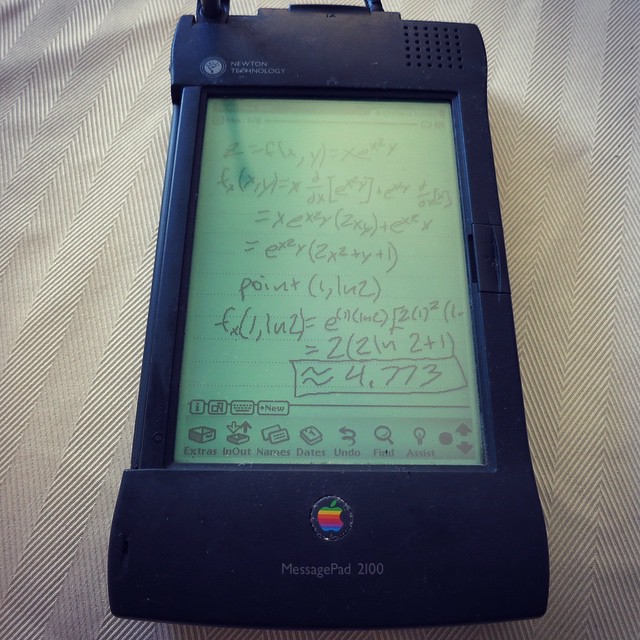 NEWTON
TECHNOLOGY
z = f(x, y) = xe^x²y
fx(x,y) = x d/dx [e^x²y] + e^x²y d/dx[x]
= xe^x²y (2xy) + e^x² x
= e^x²y (2x²+y+1)
point (1, ln2)
fx(1, ln2) = e^(1)(ln2) [2(1)² (1-
= 2(2ln 2+1)
≈ 4.773
i
New
Extras InOut Names Dates Undo Find Assist
MessagePad 2100